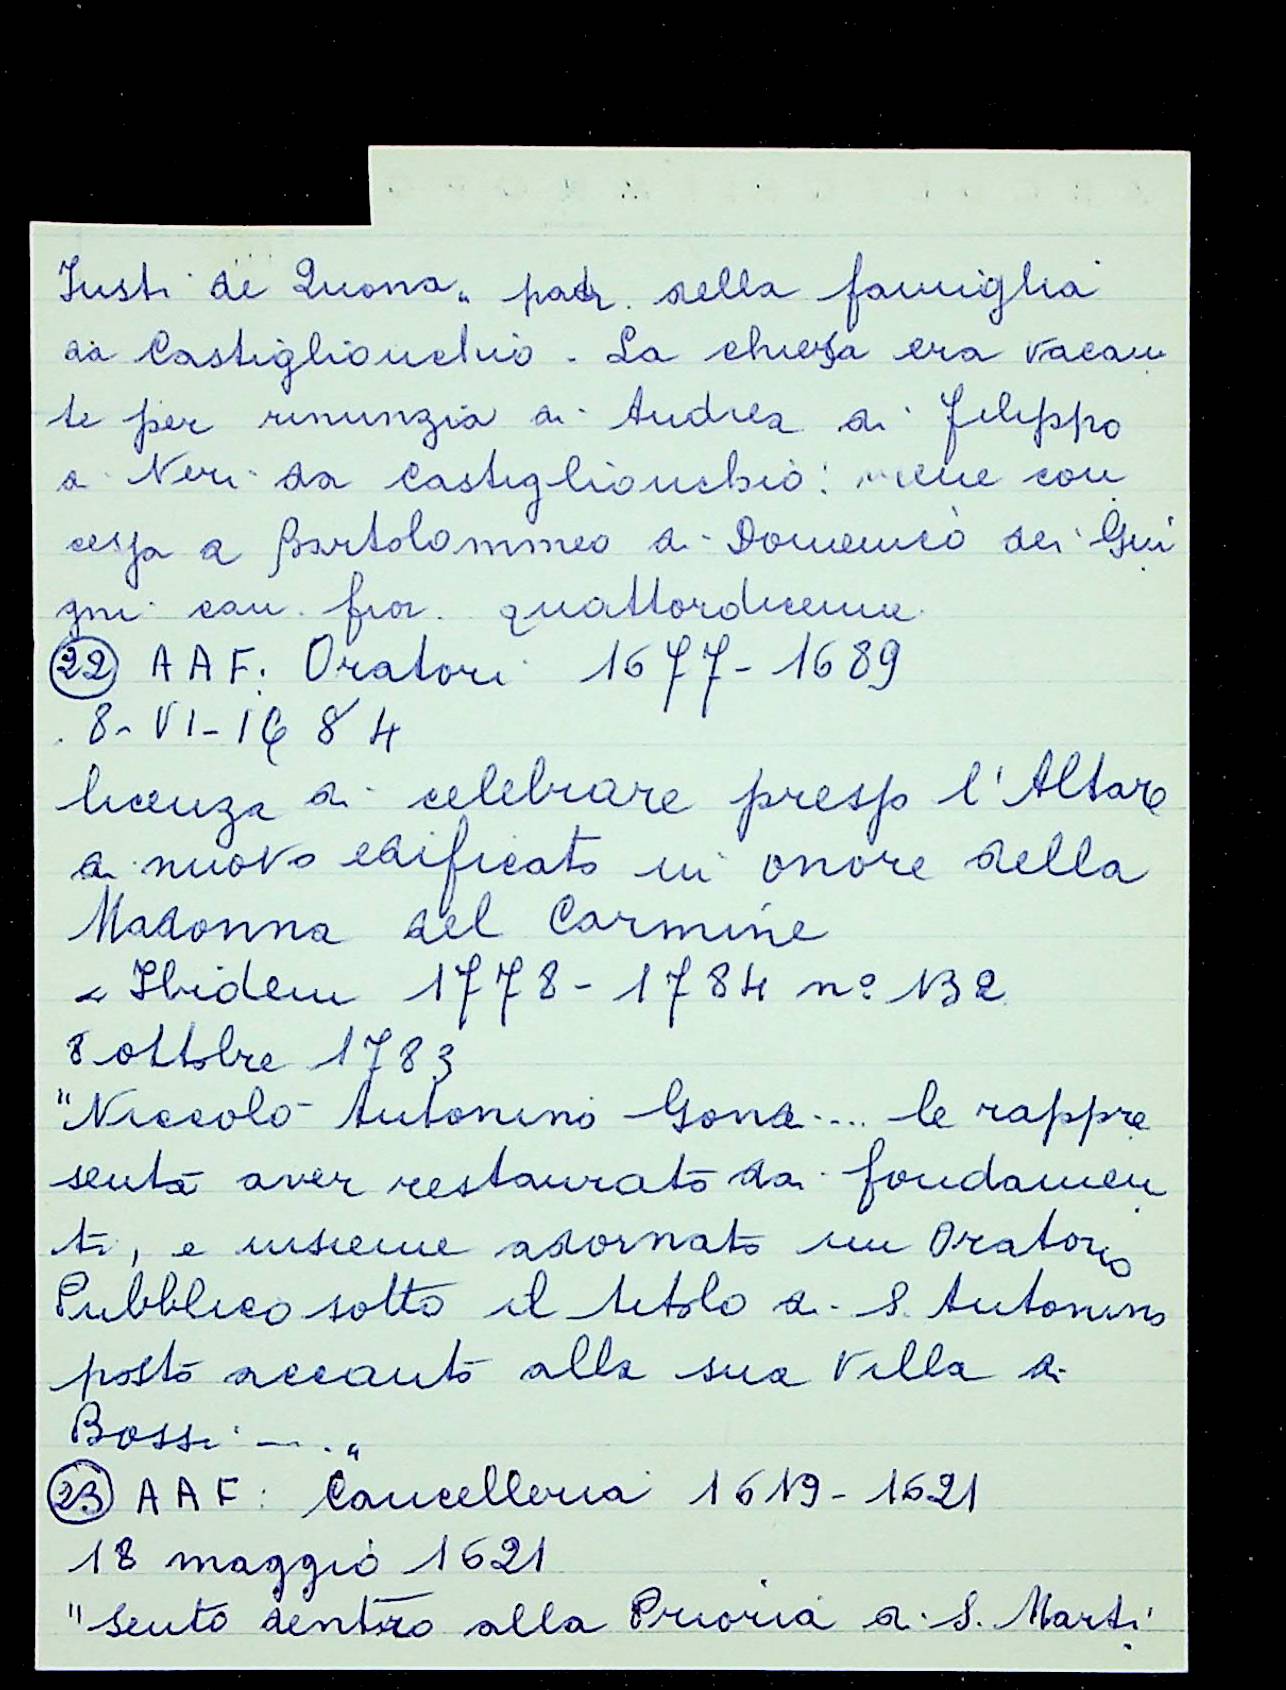 Iusti de Quona" padr. della famiglia
da Castiglionchio. La chiesa era vacan
te per rinunzia di Andrea di Filippo
di Neri da Castiglionchio: viene con
cessa a Bartolommeo di Domenico dei Giu
gni can. fior. quattordicenne.
22 AAF: Oratori 1677-1689
8-VI-1684
licenza di celebrare presso l'Altare
di nuovo edificato in onore della
Madonna del Carmine
- Ibidem 1778-1784 n° 132
8 ottobre 1783
"Niccolò Antonino Gond... le rappre
senta aver restaurato da fondamen
ti, e insieme adornato un Oratorio
Pubblico sotto il titolo di S. Antonino
posto accanto alla sua Villa di
Bossi ...."
23 AAF: Cancelleria 1619-1621
18 maggio 1621
"sento dentro alla Prioria di S. Marti